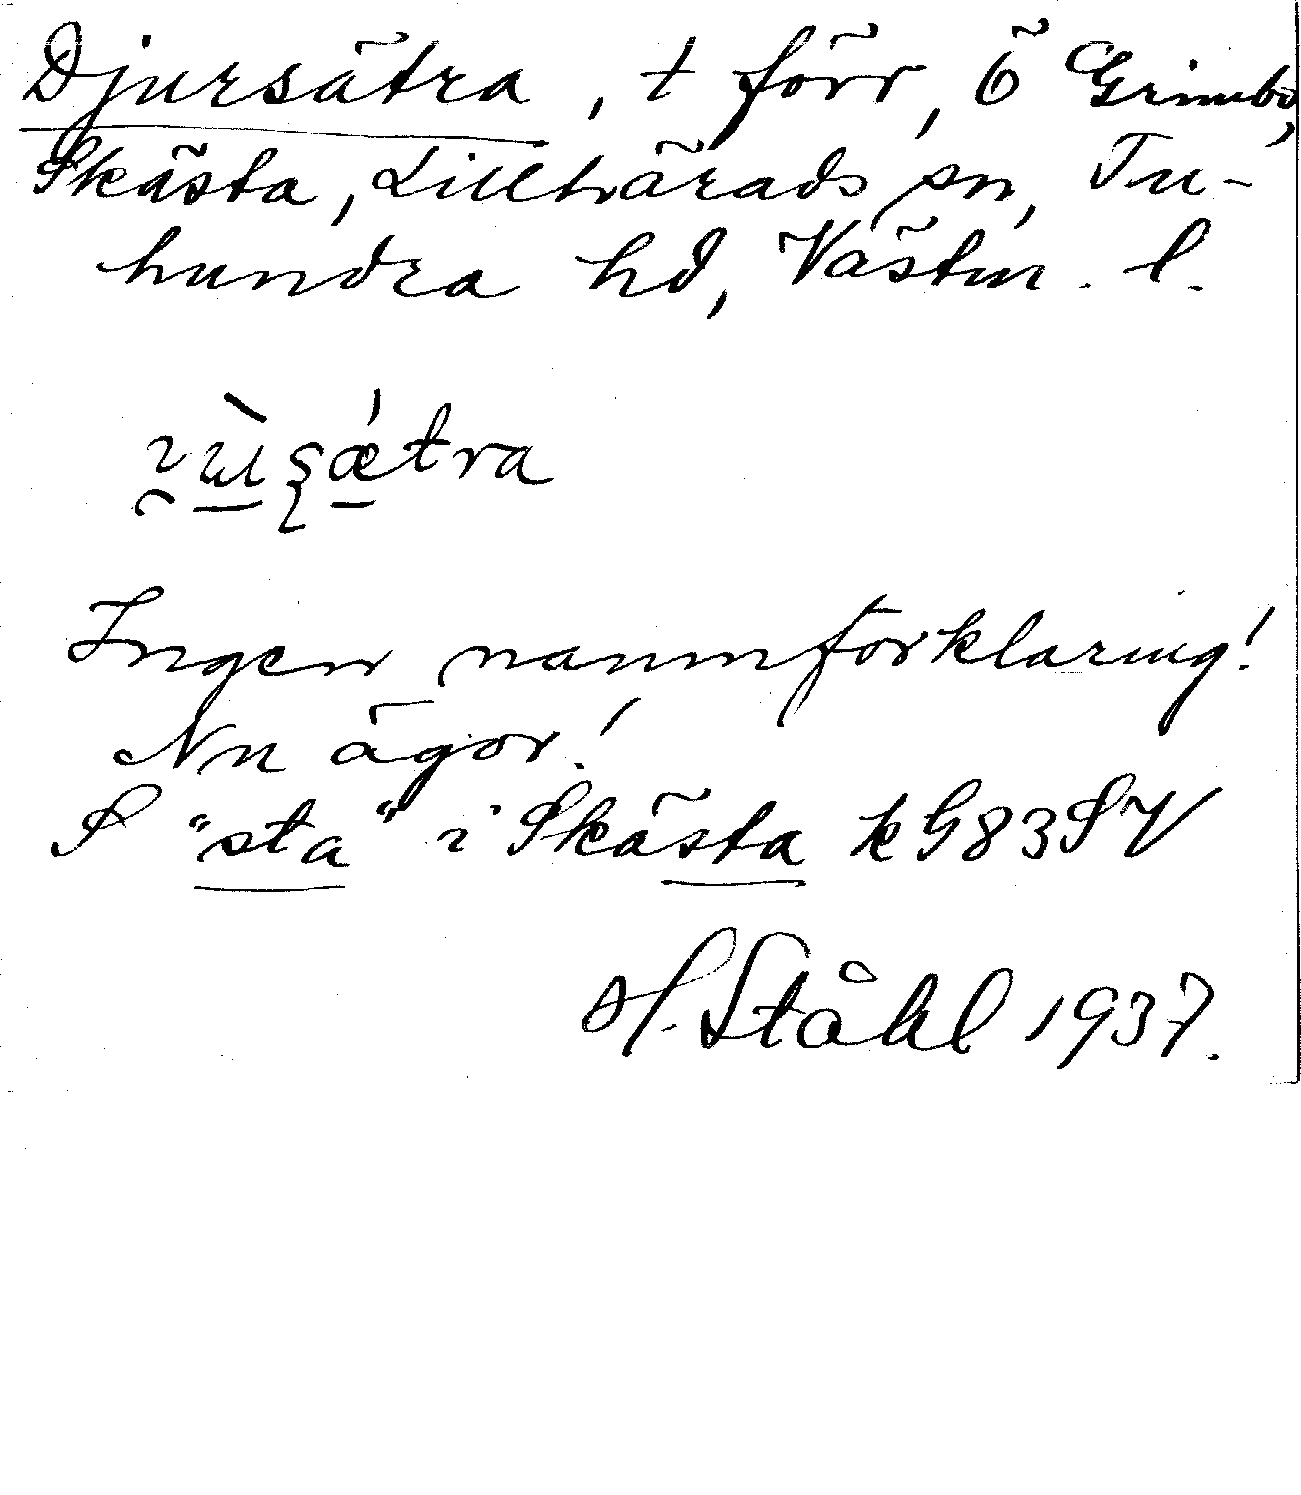 Djursätra, t förr, ö Grimbo,
Skästa, Lillhärads sn, Tu-
hundra hd, Västm. l.
Ingen namnförklaring!
Nu ägor!
S "sta" i Skästa k G83SV
H. Ståhl 1937.